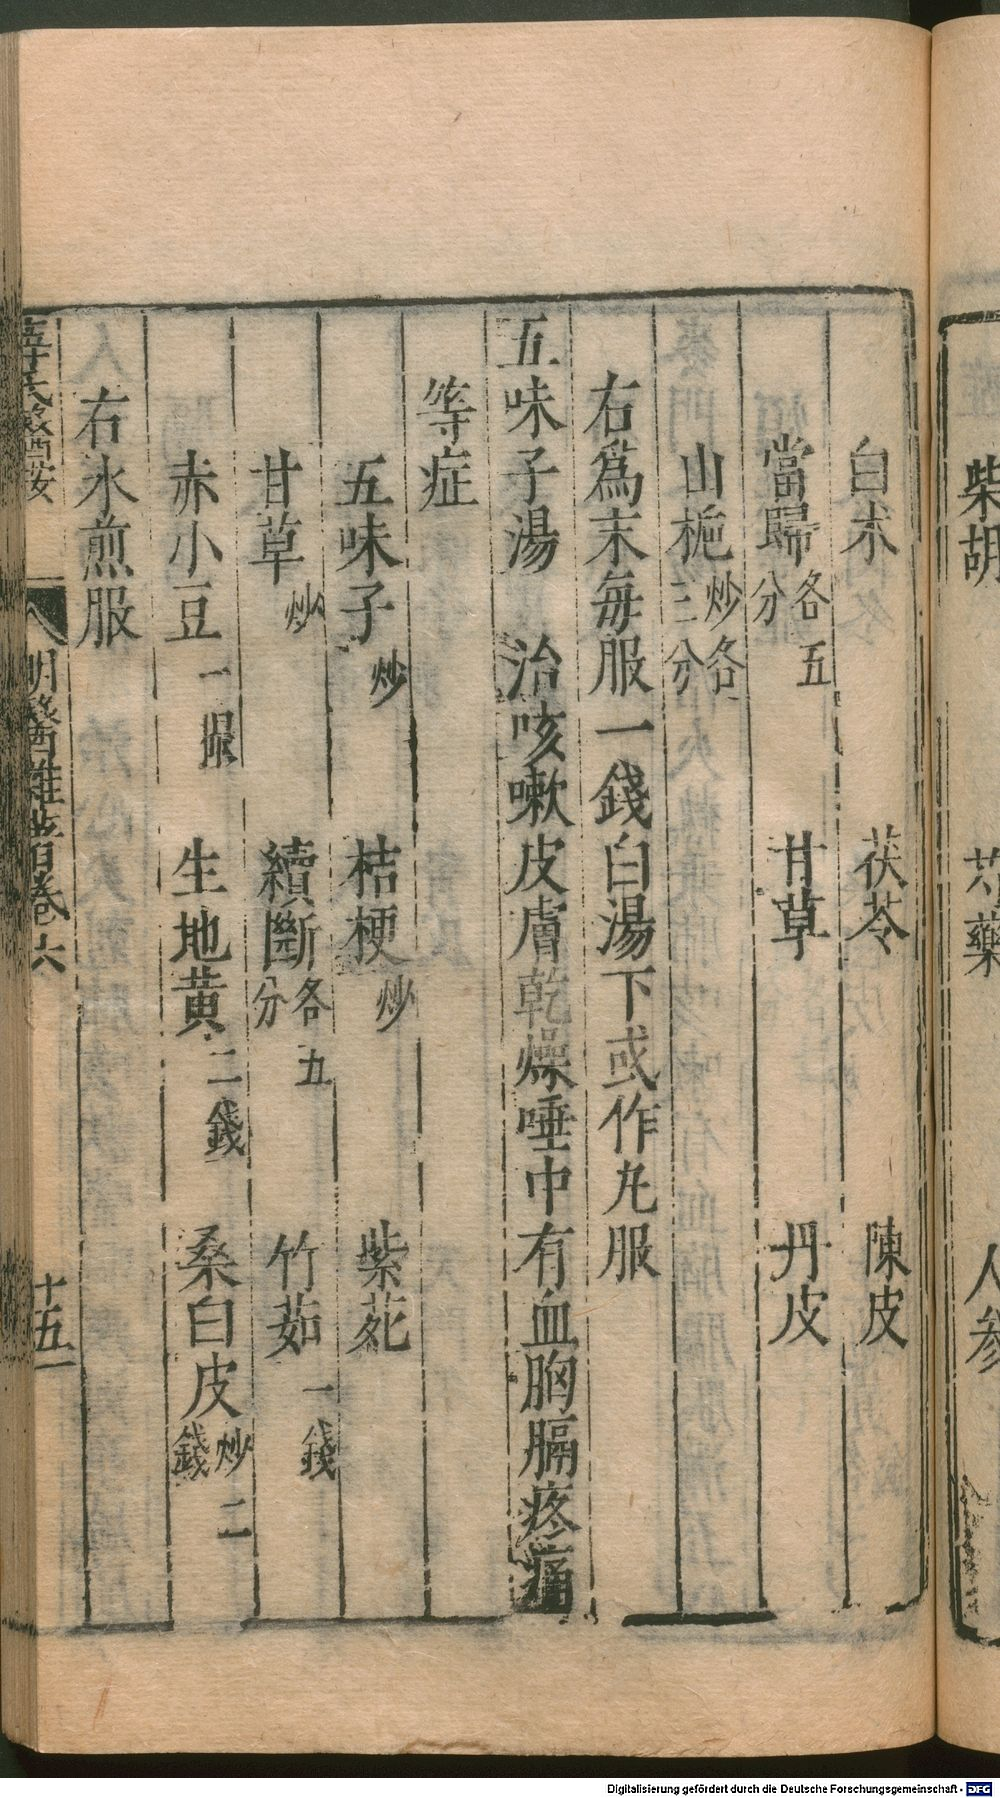 柴胡　芍藥　人參
白朮　茯苓　陳皮
當歸各五分　甘草　丹皮
山梔炒各三分
右爲末每服一錢白湯下或作丸服
五味子湯　治咳嗽皮膚乾燥唾中有血胸膈疼痛
等症
五味子炒　桔梗炒　紫菀
甘草炒　續斷各五分　竹茹一錢
赤小豆一撮　生地黃二錢　桑白皮炒二錢
右水煎服
薛氏醫按　明醫雜著卷六　十五
Digitalisierung gefördert durch die Deutsche Forschungsgemeinschaft - DFG